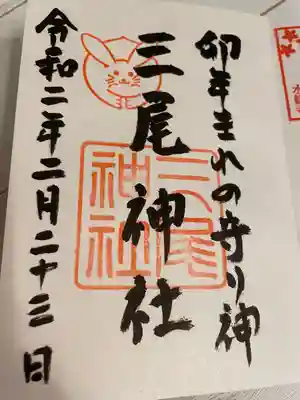 卯年生れの守り神
三尾神社
三尾神社
令和二年二月二十三日